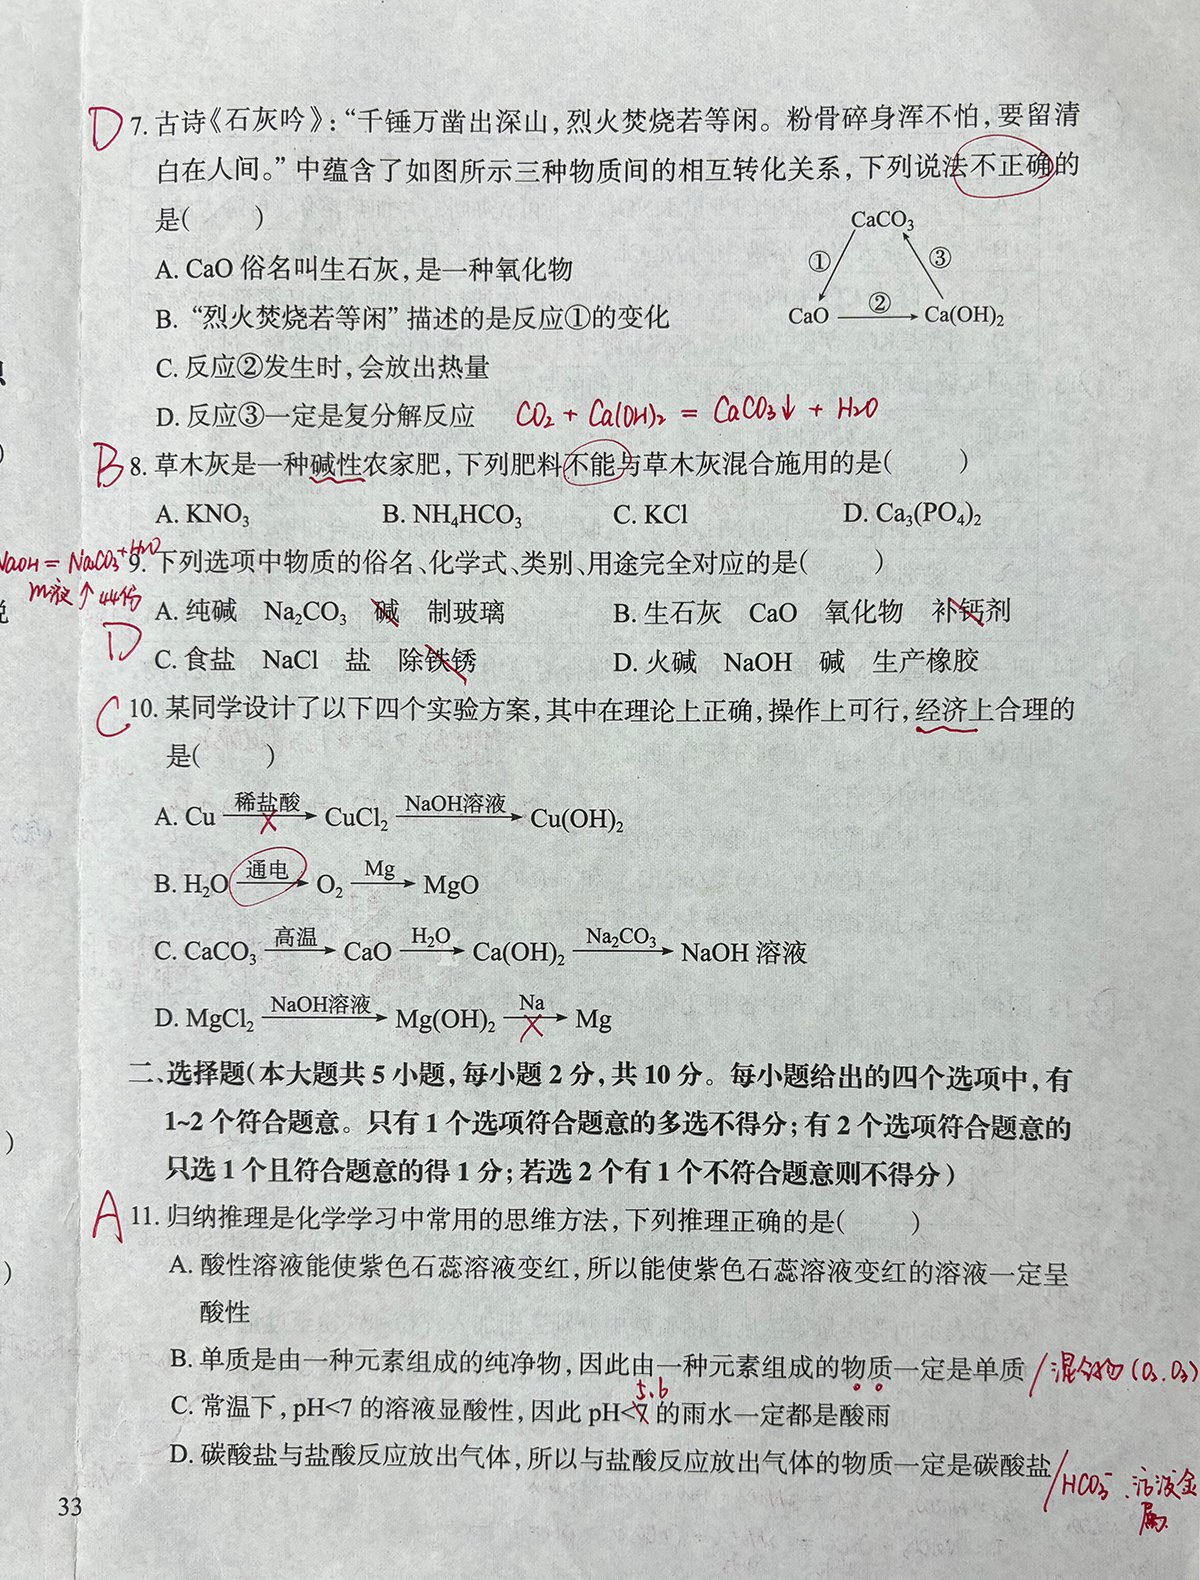 D 7. 古诗《石灰吟》：“千锤万凿出深山，烈火焚烧若等闲。粉骨碎身浑不怕，要留清
白在人间。”中蕴含了如图所示三种物质间的相互转化关系，下列说法不正确的
是(　　)
CaCO₃
① ③
CaO ② Ca(OH)₂
A. CaO 俗名叫生石灰，是一种氧化物
B. “烈火焚烧若等闲”描述的是反应①的变化
C. 反应②发生时，会放出热量
D. 反应③一定是复分解反应 CO₂ + Ca(OH)₂ = CaCO₃↓ + H₂O
B 8. 草木灰是一种碱性农家肥，下列肥料不能与草木灰混合施用的是(　　)
A. KNO₃ B. NH₄HCO₃ C. KCl D. Ca₃(PO₄)₂
NaOH = Na₂CO₃ + H₂O
m液↑ 44份
9. 下列选项中物质的俗名、化学式、类别、用途完全对应的是(　　)
A. 纯碱 Na₂CO₃ 碱 制玻璃 B. 生石灰 CaO 氧化物 补钙剂
D
C. 食盐 NaCl 盐 除铁锈 D. 火碱 NaOH 碱 生产橡胶
C 10. 某同学设计了以下四个实验方案，其中在理论上正确，操作上可行，经济上合理的
是(　　)
A. Cu 稀盐酸→ CuCl₂ NaOH溶液→ Cu(OH)₂
B. H₂O 通电→ O₂ Mg→ MgO
C. CaCO₃ 高温→ CaO H₂O→ Ca(OH)₂ Na₂CO₃→ NaOH 溶液
D. MgCl₂ NaOH溶液→ Mg(OH)₂ Na→ Mg
二、选择题(本大题共 5 小题，每小题 2 分，共 10 分。每小题给出的四个选项中，有
1~2 个符合题意。只有 1 个选项符合题意的多选不得分；有 2 个选项符合题意的
只选 1 个且符合题意的得 1 分；若选 2 个有 1 个不符合题意则不得分)
A 11. 归纳推理是化学学习中常用的思维方法，下列推理正确的是(　　)
A. 酸性溶液能使紫色石蕊溶液变红，所以能使紫色石蕊溶液变红的溶液一定呈
酸性
B. 单质是由一种元素组成的纯净物，因此由一种元素组成的物质一定是单质 / 混合物(O₂、O₃)
5.6
C. 常温下，pH<7 的溶液显酸性，因此 pH<7 的雨水一定都是酸雨
D. 碳酸盐与盐酸反应放出气体，所以与盐酸反应放出气体的物质一定是碳酸盐
/ HCO₃⁻、活泼金
属
33